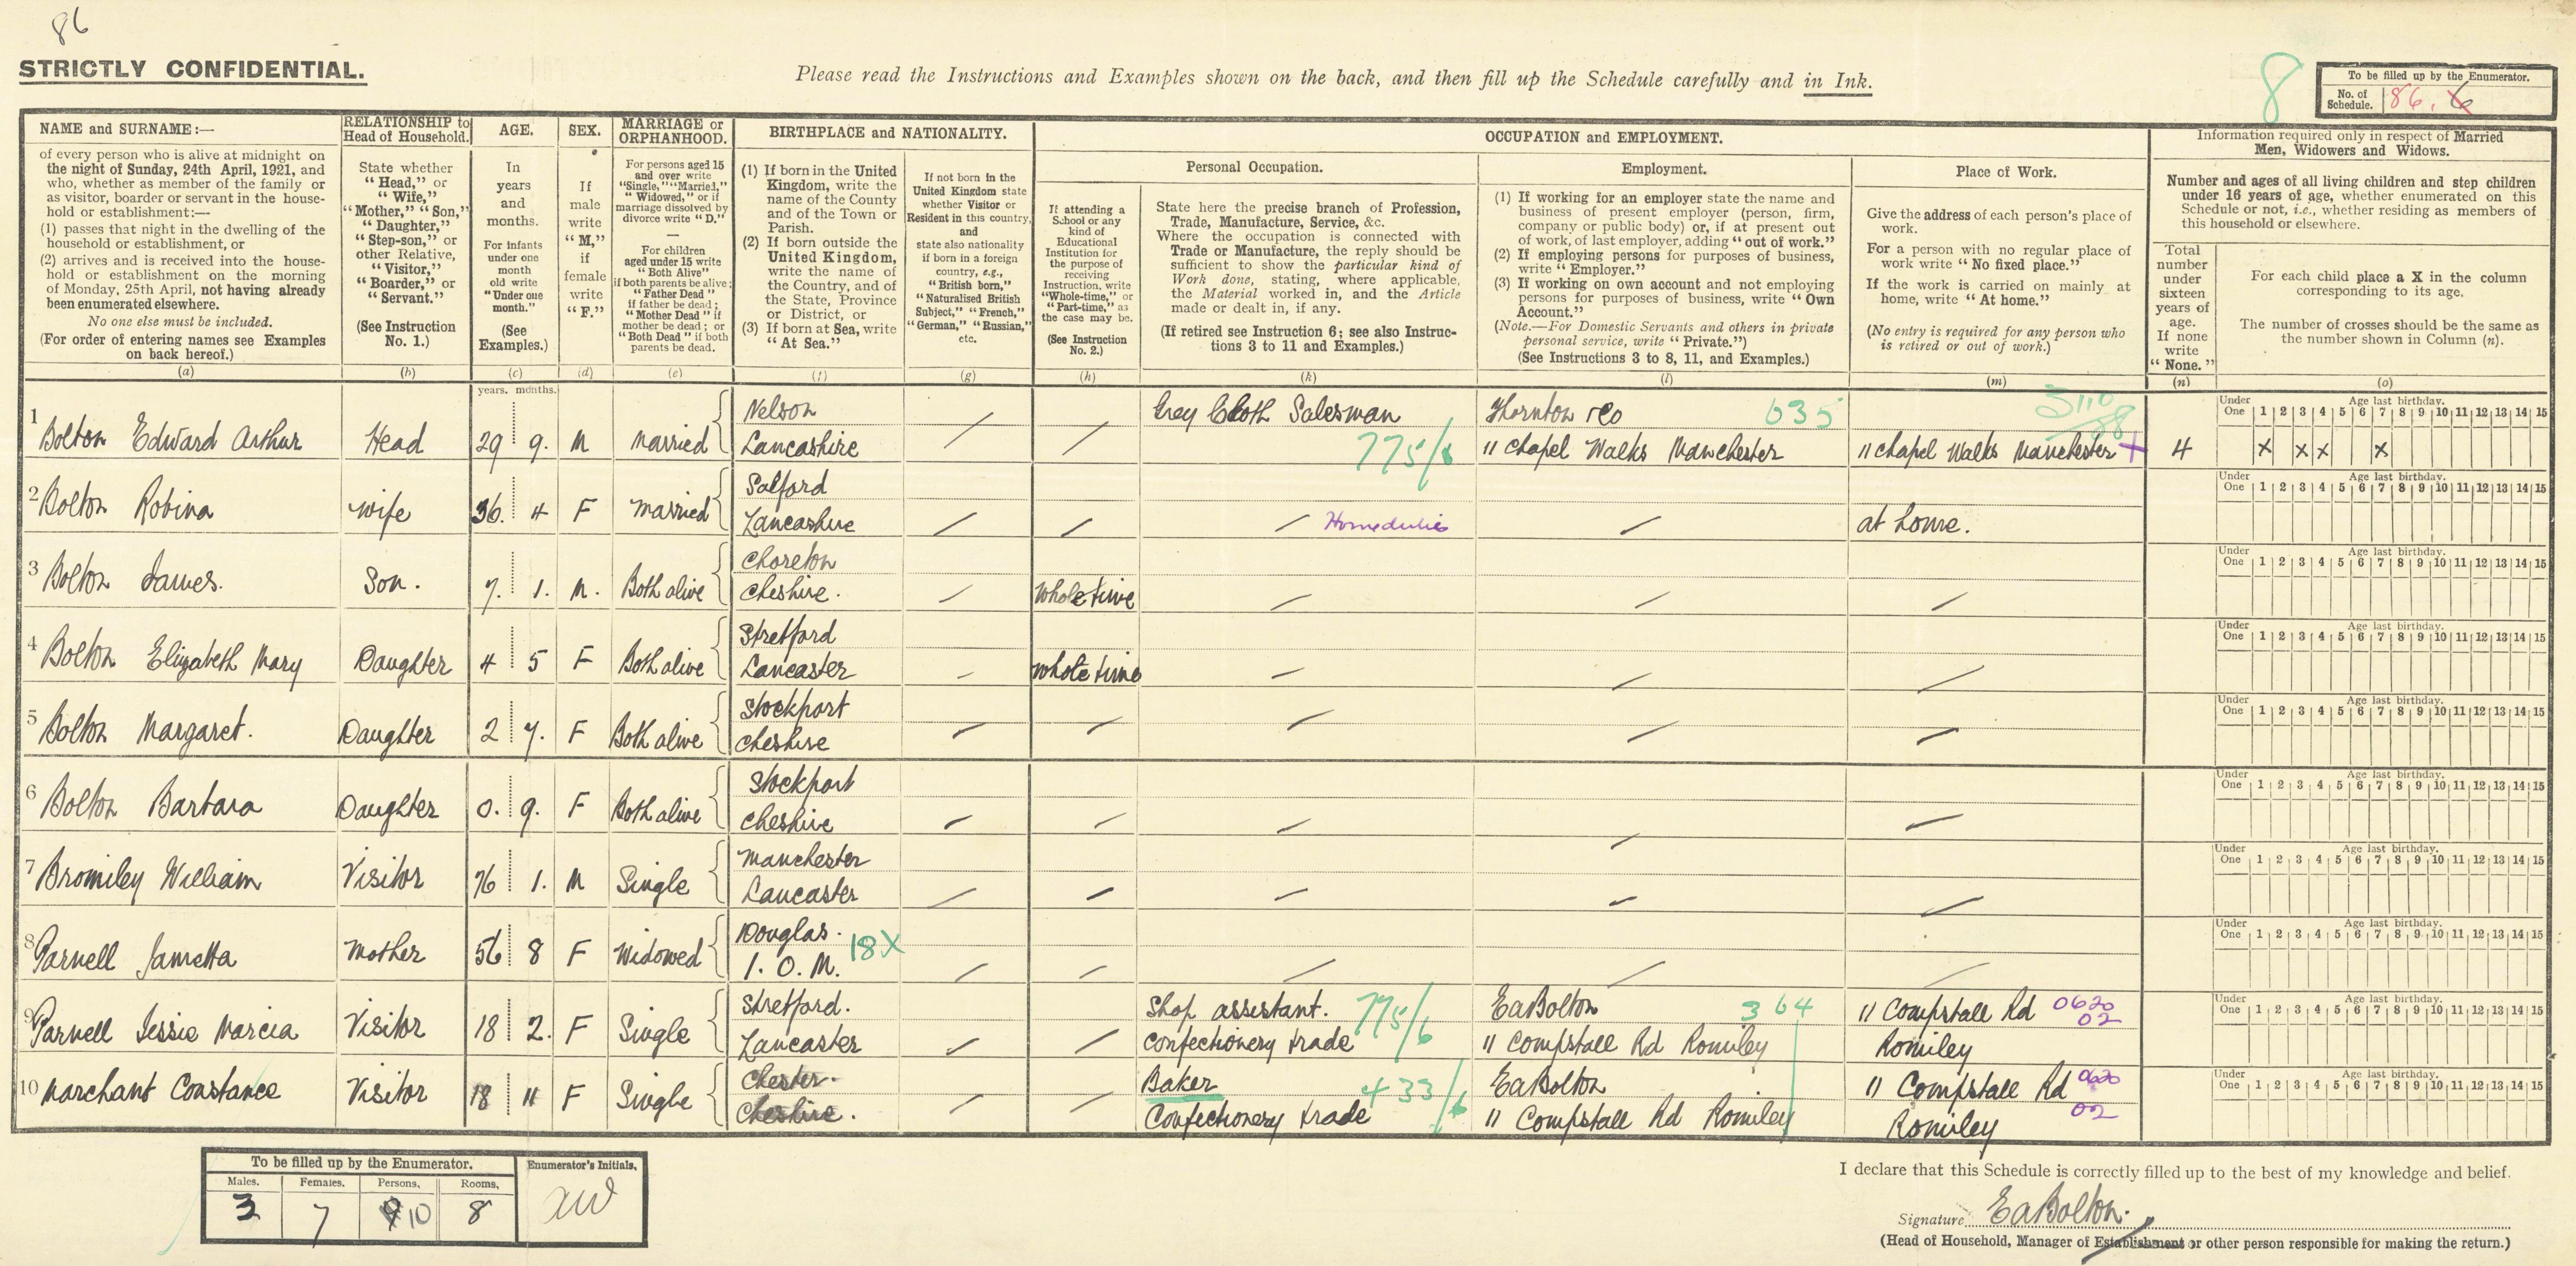 86
STRICTLY CONFIDENTIAL.
Please read the Instructions and Examples shown on the back, and then fill up the Schedule carefully and in Ink.
8
To be filled up by the Enumerator.
No. of Schedule. 86.
NAME and SURNAME:—
of every person who is alive at midnight on
the night of Sunday, 24th April, 1921, and
who, whether as member of the family or
as visitor, boarder or servant in the house-
hold or establishment:—
(1) passes that night in the dwelling of the
household or establishment, or
(2) arrives and is received into the house-
hold or establishment on the morning
of Monday, 25th April, not having already
been enumerated elsewhere.
No one else must be included.
(For order of entering names see Examples
on back hereof.)
(a)
RELATIONSHIP to
Head of Household.
State whether
"Head," or
"Wife,"
"Mother," "Son,"
"Daughter,"
"Step-son," or
other Relative,
"Visitor,"
"Boarder," or
"Servant."
(See Instruction
No. 1.)
(b)
AGE.
In
years
and
months.
For infants
under one
month
old write
"Under one
month."
(See
Examples.)
(c)
years. months.
SEX.
If
male
write
"M,"
if
female
write
"F."
(d)
MARRIAGE or
ORPHANHOOD.
For persons aged 15
and over write
"Single," "Married,"
"Widowed," or if
marriage dissolved by
divorce write "D."
—
For children
aged under 15 write
"Both Alive"
if both parents be alive;
"Father Dead"
if father be dead;
"Mother Dead" if
mother be dead; or
"Both Dead" if both
parents be dead.
(e)
BIRTHPLACE and NATIONALITY.
(1) If born in the United
Kingdom, write the
name of the County
and of the Town or
Parish.
(2) If born outside the
United Kingdom,
write the name of
the Country, and of
the State, Province
or District, or
(3) If born at Sea, write
"At Sea."
(f)
If not born in the
United Kingdom state
whether Visitor or
Resident in this country,
and
state also nationality
if born in a foreign
country, e.g.,
"British born,"
"Naturalised British
Subject," "French,"
"German," "Russian,"
etc.
(g)
OCCUPATION and EMPLOYMENT.
If attending a
School or any
kind of
Educational
Institution for
the purpose of
receiving
Instruction, write
"Whole-time," or
"Part-time," as
the case may be.
(See Instruction
No. 2.)
(h)
Personal Occupation.
State here the precise branch of Profession,
Trade, Manufacture, Service, &c.
Where the occupation is connected with
Trade or Manufacture, the reply should be
sufficient to show the particular kind of
Work done, stating, where applicable,
the Material worked in, and the Article
made or dealt in, if any.
(If retired see Instruction 6; see also Instruc-
tions 3 to 11 and Examples.)
(k)
Employment.
(1) If working for an employer state the name and
business of present employer (person, firm,
company or public body) or, if at present out
of work, of last employer, adding "out of work."
(2) If employing persons for purposes of business,
write "Employer."
(3) If working on own account and not employing
persons for purposes of business, write "Own
Account."
(Note.—For Domestic Servants and others in private
personal service, write "Private.")
(See Instructions 3 to 8, 11, and Examples.)
(l)
Place of Work.
Give the address of each person's place of
work.
For a person with no regular place of
work write "No fixed place."
If the work is carried on mainly at
home, write "At home."
(No entry is required for any person who
is retired or out of work.)
(m)
Information required only in respect of Married
Men, Widowers and Widows.
Number and ages of all living children and step children
under 16 years of age, whether enumerated on this
Schedule or not, i.e., whether residing as members of
this household or elsewhere.
Total
number
under
sixteen
years of
age.
If none
write
"None."
(n)
For each child place a X in the column
corresponding to its age.
The number of crosses should be the same as
the number shown in Column (n).
(o)
Under One Age last birthday.
1 2 3 4 5 6 7 8 9 10 11 12 13 14 15
1 Bolton Edward Arthur Head 29 9. M Married Nelson Lancashire / / Grey Cloth Salesman 775/ Thornton & Co 635 11 Chapel Walks Manchester 11 Chapel Walks Manchester 4 X X X X
2 Bolton Robina Wife 36. 4 F Married Salford Lancashire / / / Home duties / at home.
Under One Age last birthday.
1 2 3 4 5 6 7 8 9 10 11 12 13 14 15
3 Bolton James. Son. 7. 1. M. Both alive Chorelton Cheshire. / Whole time / / /
Under One Age last birthday.
1 2 3 4 5 6 7 8 9 10 11 12 13 14 15
4 Bolton Elizabeth Mary Daughter 4 5 F Both alive Stretford Lancaster / Whole time / / /
Under One Age last birthday.
1 2 3 4 5 6 7 8 9 10 11 12 13 14 15
5 Bolton Margaret. Daughter 2 7. F Both alive Stockport Cheshire / / / / /
Under One Age last birthday.
1 2 3 4 5 6 7 8 9 10 11 12 13 14 15
6 Bolton Barbara Daughter 0. 9. F Both alive Stockport Cheshire / / / / /
Under One Age last birthday.
1 2 3 4 5 6 7 8 9 10 11 12 13 14 15
7 Bromiley William Visitor 76 1. M Single Manchester Lancaster / / / / /
Under One Age last birthday.
1 2 3 4 5 6 7 8 9 10 11 12 13 14 15
8 Parnell Jametta Mother 56 8 F Widowed Douglas. I. O. M. 18X / / / / /
Under One Age last birthday.
1 2 3 4 5 6 7 8 9 10 11 12 13 14 15
9 Parnell Jessie Marcia Visitor 18 2. F Single Stretford. Lancaster / / Shop assistant. Confectionery trade 775/6 EABolton 364 11 Compstall Rd Romiley 11 Compstall Rd Romiley 0620 02
Under One Age last birthday.
1 2 3 4 5 6 7 8 9 10 11 12 13 14 15
10 Marchant Constance Visitor 18 11 F Single Chester. Cheshire. / / Baker Confectionery trade 433/6 EABolton 11 Compstall Rd Romiley 11 Compstall Rd Romiley 0620 02
Under One Age last birthday.
1 2 3 4 5 6 7 8 9 10 11 12 13 14 15
To be filled up by the Enumerator.
Males. Females. Persons. Rooms.
3 7 10 8
Enumerator's Initials.
I declare that this Schedule is correctly filled up to the best of my knowledge and belief.
Signature EABolton.
(Head of Household, Manager of Establishment or other person responsible for making the return.)